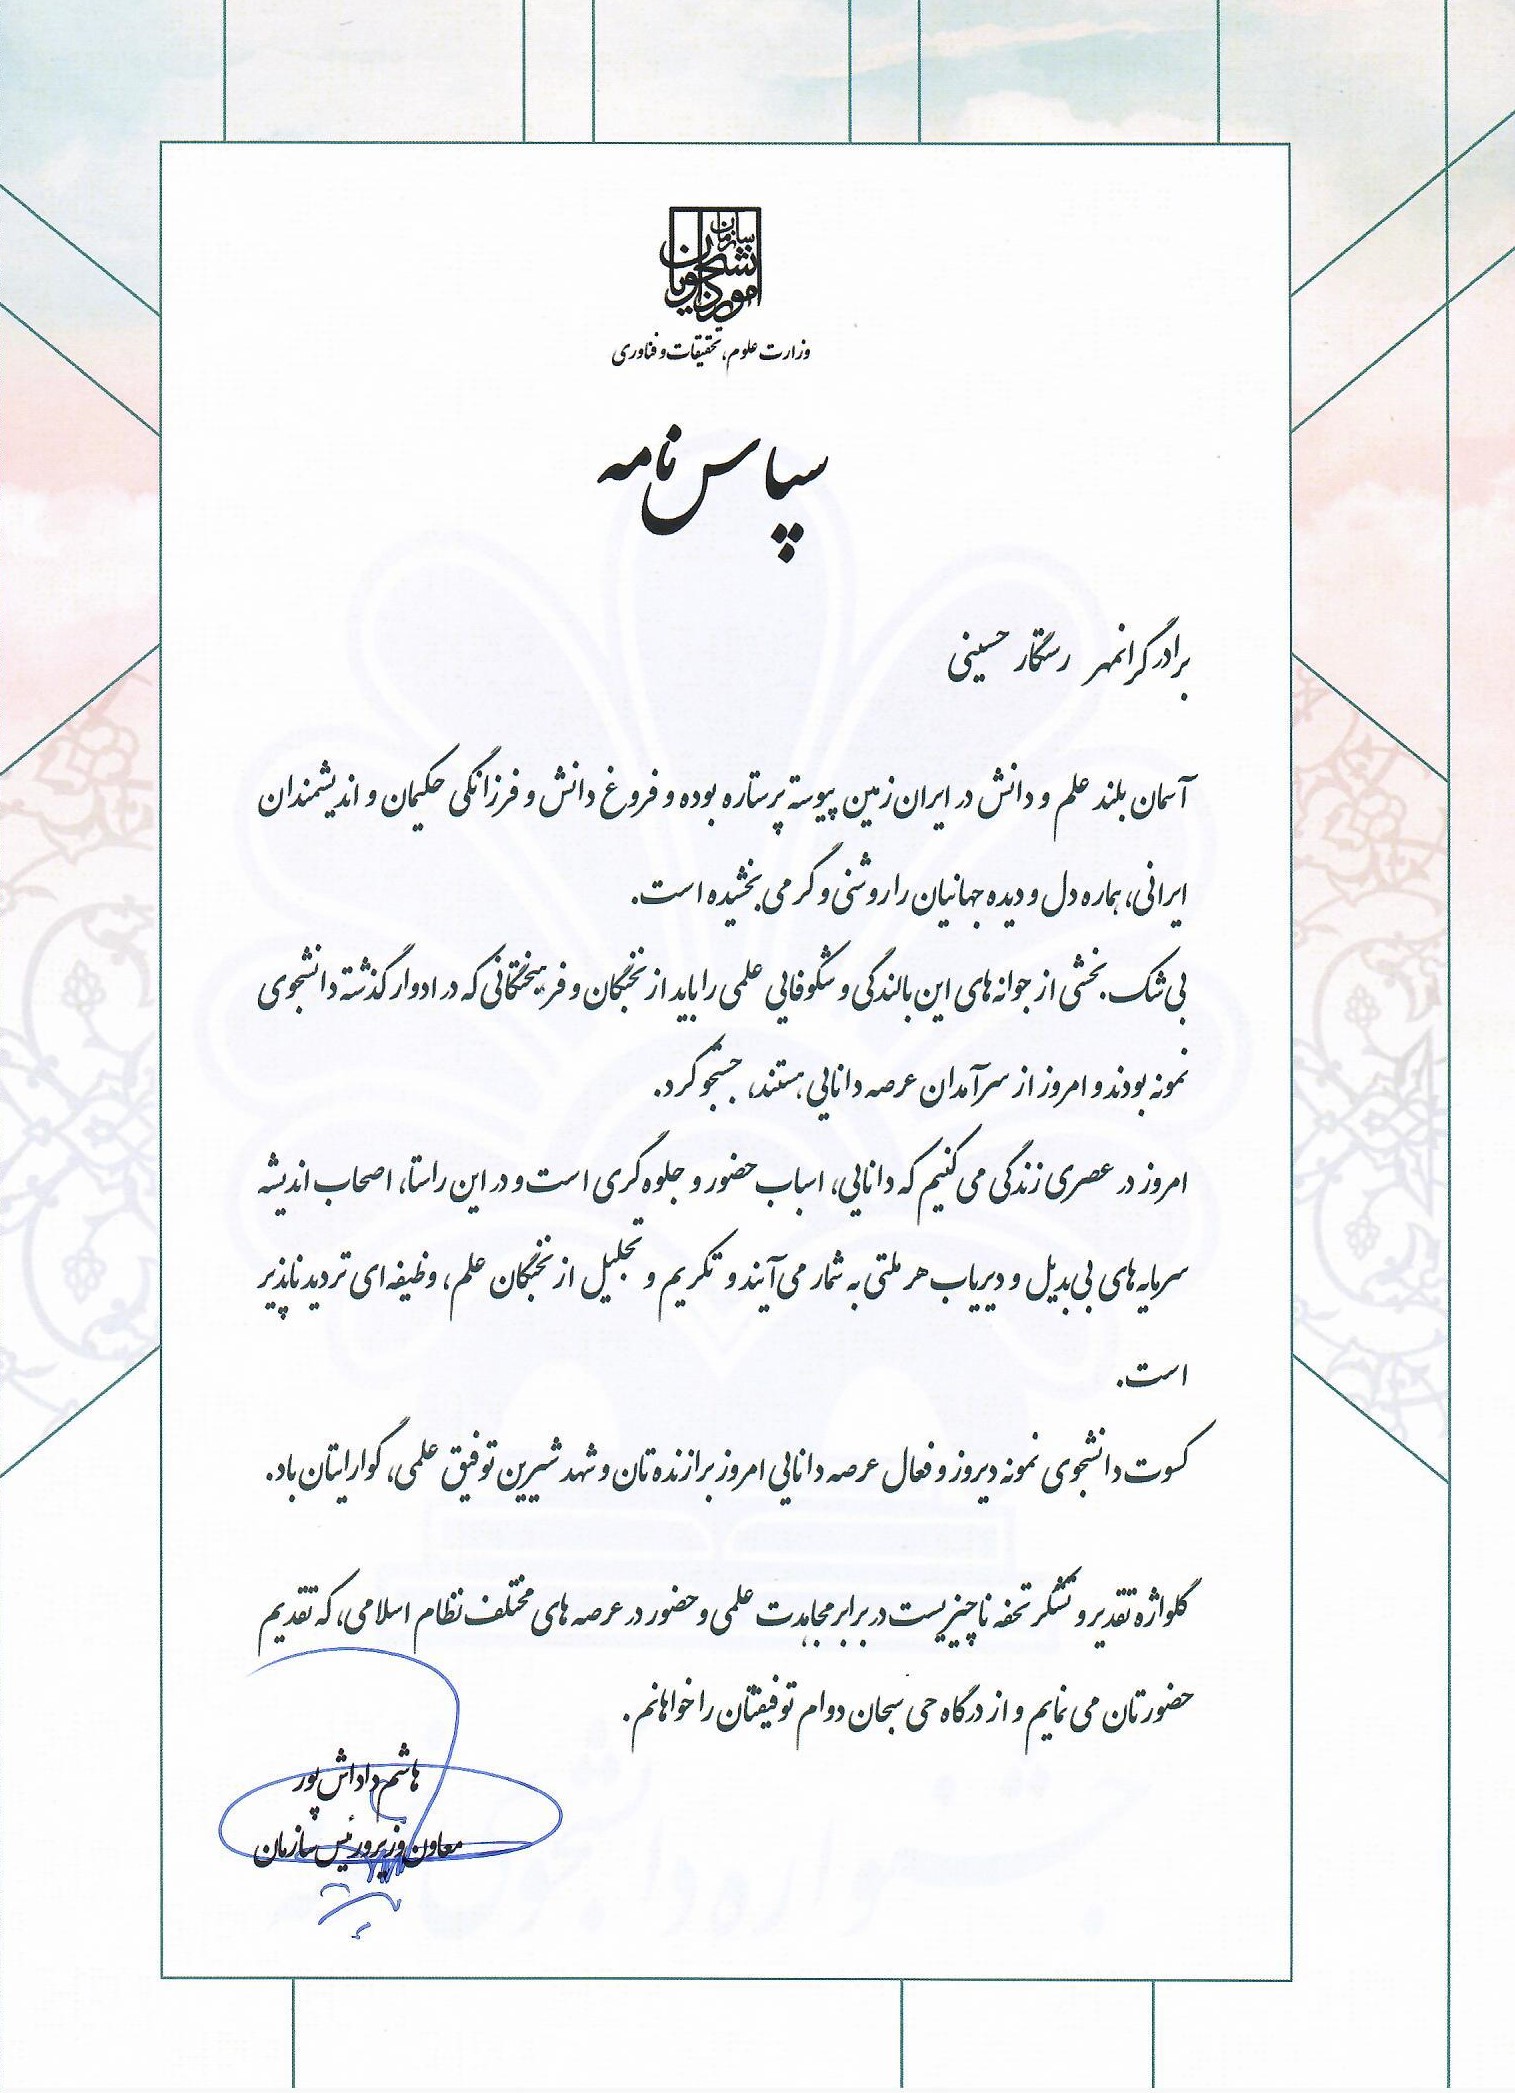 سازمان
امور دانشجویان
وزارت علوم، تحقیقات و فناوری
سپاس نامه
برادر گرانمهر رستگار حسینی
آسمان بلند علم و دانش در ایران زمین پیوسته پرستاره بوده و فروغ دانش و فرزانگی حکیمان و اندیشمندان
ایرانی، هماره دل و دیده جهانیان را روشنی و گرمی بخشیده است.
بی شک بخشی از جوانه های این بالندگی و شکوفایی علمی را باید از نخبگان و فرهیختگانی که در ادوار گذشته دانشجوی
نمونه بودند و امروز از سرآمدان عرصه دانایی هستند، جستجو کرد.
امروز در عصری زندگی می کنیم که دانایی، اسباب حضور و جلوه گری است و در این راستا، اصحاب اندیشه
سرمایه های بی بدیل و دیریاب هر ملتی به شمار می آیند و تکریم و تجلیل از نخبگان علم، وظیفه ای تردید ناپذیر
است.
کسوت دانشجوی نمونه دیروز و فعال عرصه دانایی امروز برازنده تان و شهد شیرین توفیق علمی، گوارایتان باد.
گلواژه تقدیر و تشکر تحفه ناچیزیست در برابر مجاهدت علمی و حضور در عرصه های مختلف نظام اسلامی، که تقدیم
حضورتان می نمایم و از درگاه حی سبحان دوام توفیقتان را خواهانم.
هاشم داداش پور
معاون وزیر و رئیس سازمان